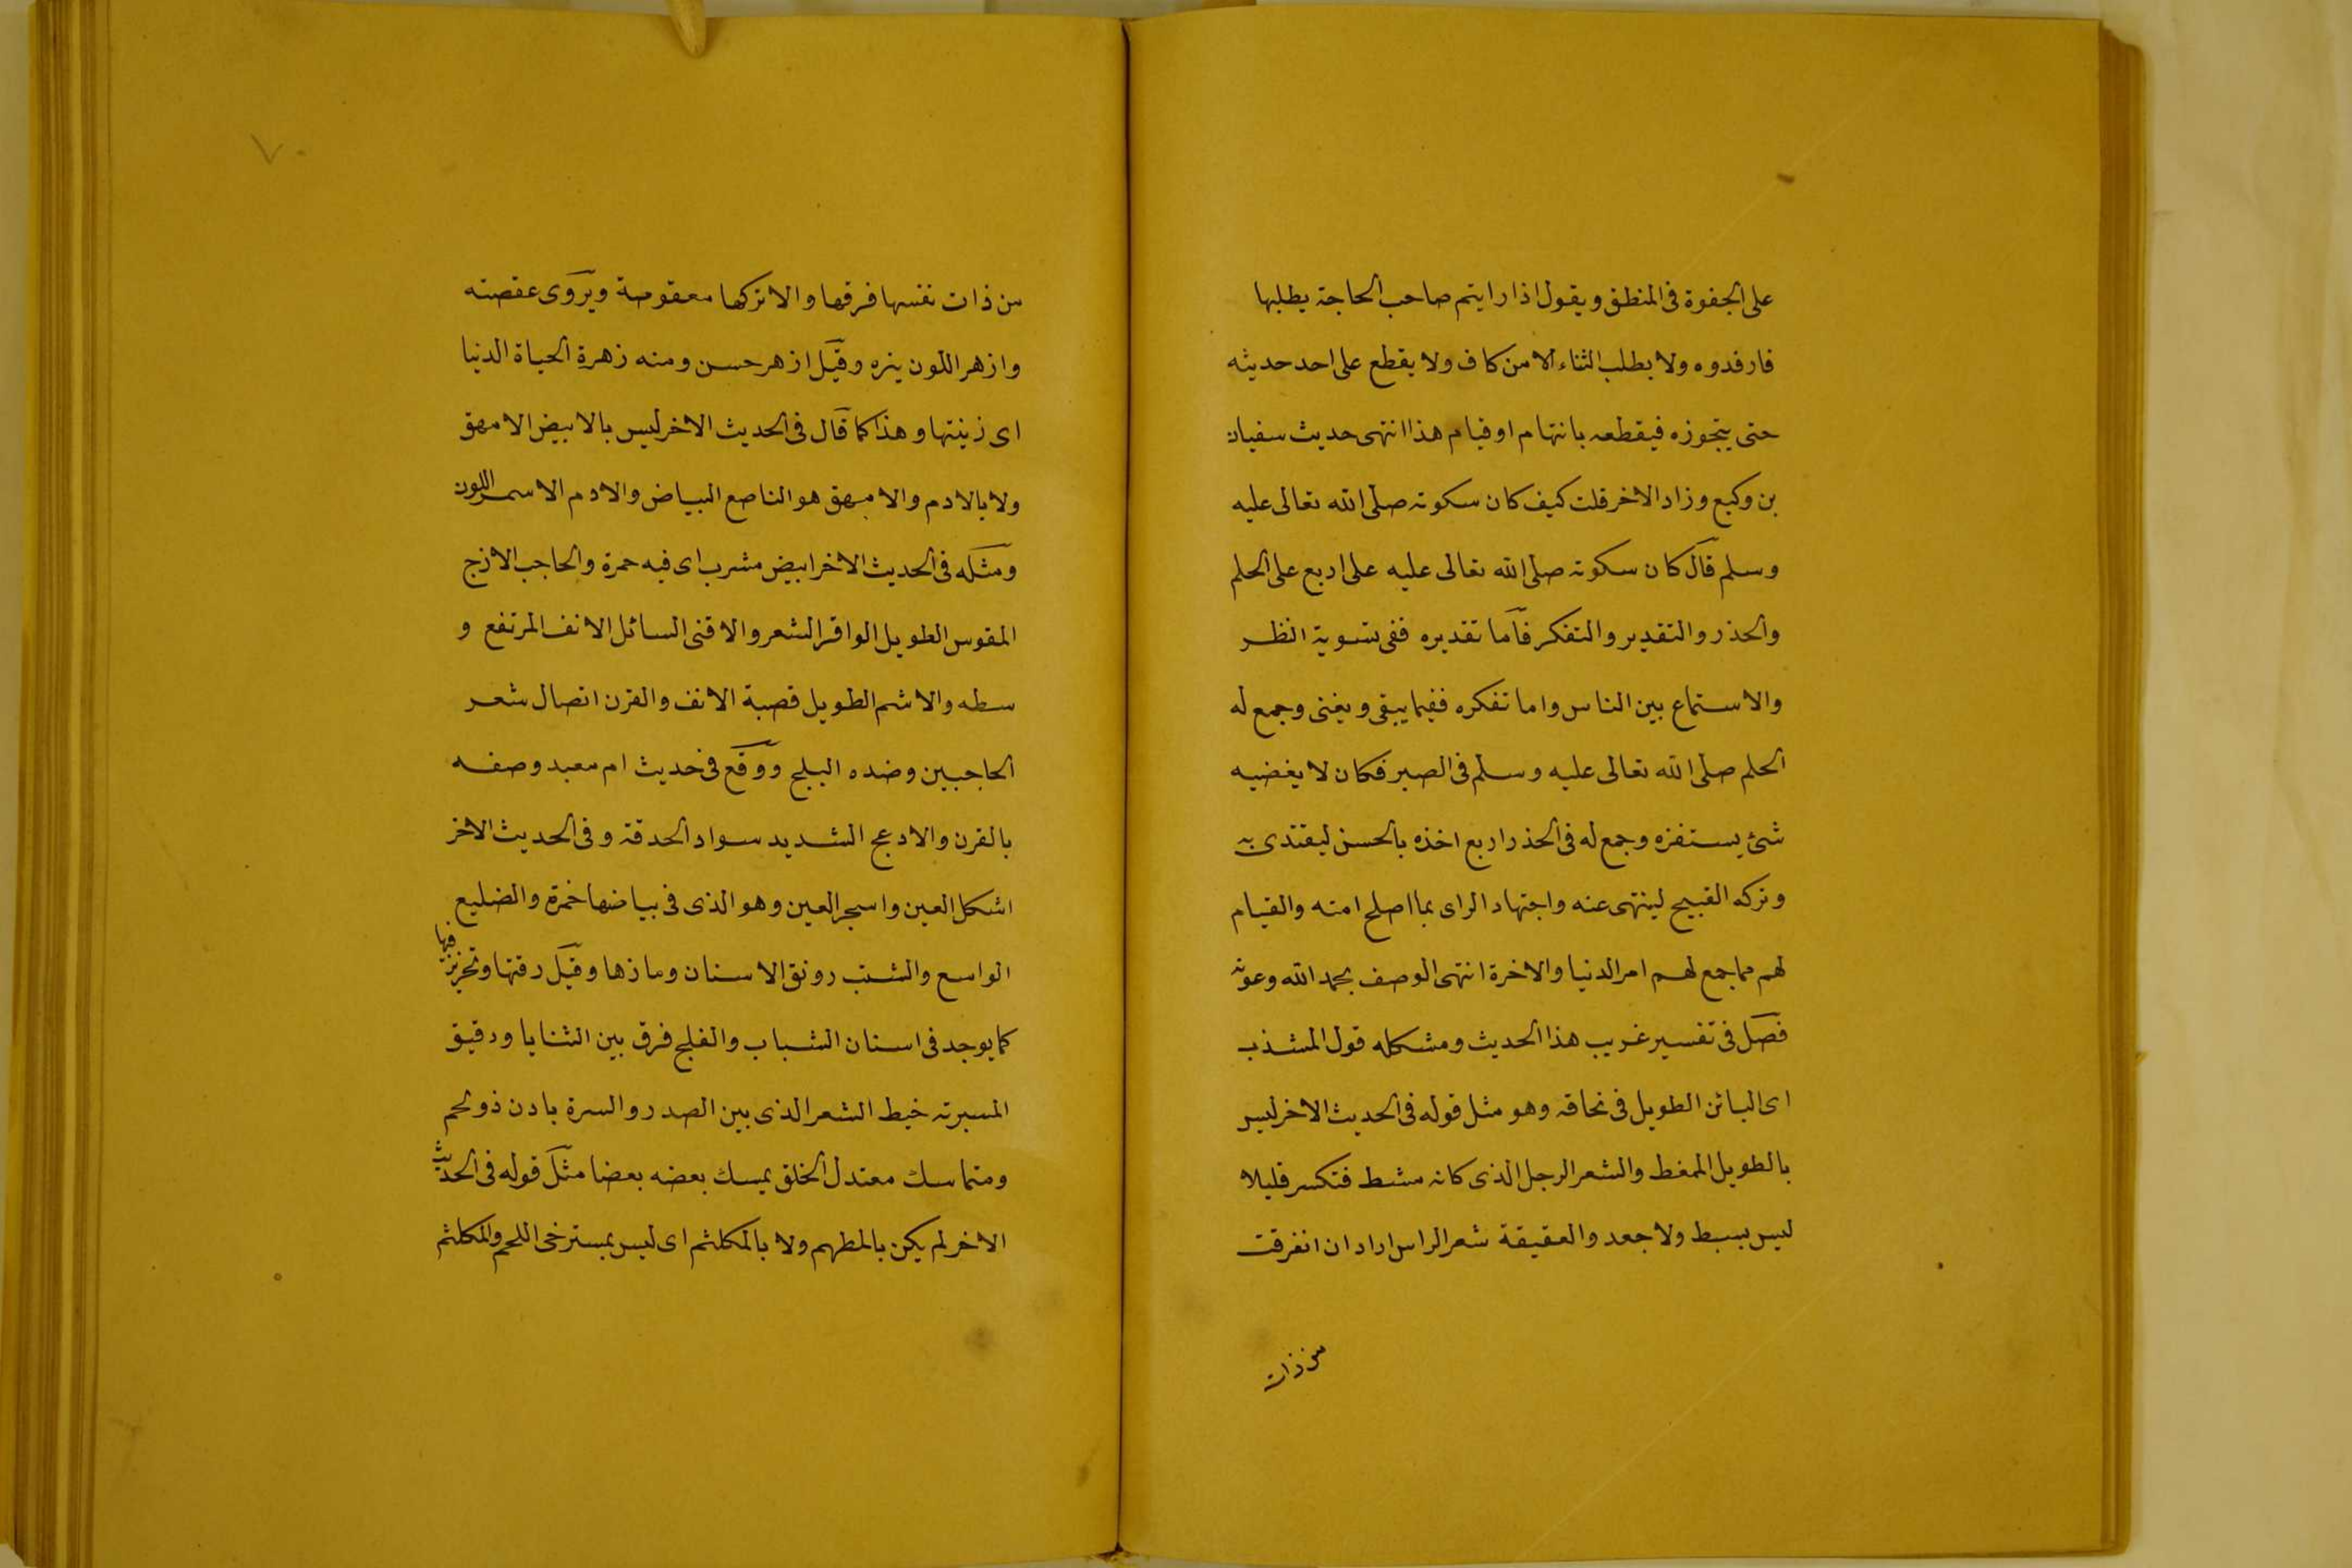 على الجفوة فى المنطق ويقول اذا رايتم صاحب الحاجة يطلبها
فارفدوه ولا يطلب الثناء الا من كاف ولا يقطع على احد حديثه
حتى يتجوزه فيقطعه بانتهاء او قيام هذا انتهى حديث سفيان
بن وكيع وزاد الاخر قلت كيف كان سكوته صلى الله تعالى عليه
وسلم قال كان سكوته صلى الله تعالى عليه على اربع على الحلم
والحذر والتقدير والتفكر فاما تقديره ففى تسوية النظر
والاستماع بين الناس واما تفكره ففيما يبقى ويفنى وجمع له
الحلم صلى الله تعالى عليه وسلم فى الصبر فكان لا يغضبه
شئ يستفزه وجمع له فى الحذر اربع اخذه بالحسن ليقتدى به
وتركه القبيح لينتهى عنه واجتهاد الراى بما اصلح امته والقيام
لهم مما جمع لهم امر الدنيا والاخرة انتهى الوصف بحمد الله وعونه
فصل فى تفسير غريب هذا الحديث ومشكله قول المشذب
اى البائن الطويل فى نحافة وهو مثل قوله فى الحديث الاخر ليس
بالطويل الممغط والشعر الرجل الذى كانه مشط فتكسر قليلا
ليس بسبط ولا جعد والعقيقة شعر الراس اراد ان انفرقت
من ذات
٧٠
من ذات نفسها فرقها والا تركها معقوصة ويروى عقصته
وازهر اللون نيره وقيل ازهر حسن ومنه زهرة الحياة الدنيا
اى زينتها وهذا كما قال فى الحديث الاخر ليس بالابيض الامهق
ولا بالادم والامهق هو الناصع البياض والادم الاسمر اللون
ومثله فى الحديث الاخر ابيض مشرب اى فيه حمرة والحاجب الازج
المقوس الطويل الوافر الشعر والاقنى السائل الانف المرتفع و
سطه والاشم الطويل قصبة الانف والقرن اتصال شعر
الحاجبين وضده البلج ووقع فى حديث ام معبد وصفه
بالقرن والادعج الشديد سواد الحدقة وفى الحديث الاخر
اشكل العين واسجر العين وهو الذى فى بياضها حمرة والضليع
الواسع والشنب رونق الاسنان وماؤها وقيل رقتها وتحزيز فيها
كما يوجد فى اسنان الشباب والفلج فرق بين الثنايا ودقيق
المسبرته خيط الشعر الذى بين الصدر والسرة بادن ذو لحم
ومتماسك معتدل الخلق يمسك بعضه بعضا مثل قوله فى الحديث
الاخر لم يكن بالمطهم ولا بالمكلثم اى ليس بمسترخى اللحم والمكلثم